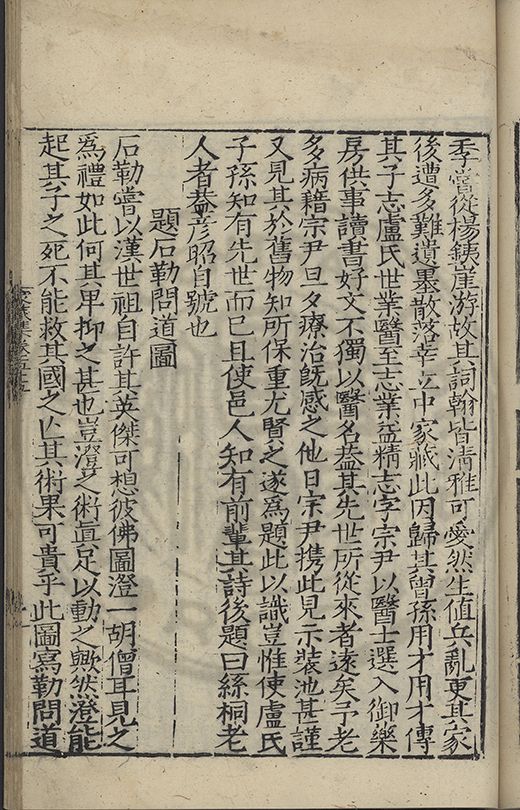 季嘗從楊銕崖游故其詞翰皆清雅可愛然生值兵亂更其家
後遭多難遺墨散落幸立中家藏此因歸其曾孫用才用才傳
其子志盧氏世業醫至志業益精志字宗尹以醫士選入御藥
房供事讀書好文不獨以醫名葢其先世所從來者遠矣予老
多病籍宗尹旦夕療治旣感之他日宗尹携此見示裝池甚謹
又見其於舊物知所保重尤賢之遂爲題此以識豈惟使盧氏
子孫知有先世而已且使邑人知有前輩其詩後題曰絲桐老
人者葢彥昭自號也
題石勒問道圖
石勒嘗以漢世祖自許其英傑可想彼佛圖澄一胡僧耳見之
爲禮如此何其𤰞抑之甚也豈澄之術眞足以動之歟然澄能
起其子之死不能救其國之亾其術果可貴乎此圖寫勒問道